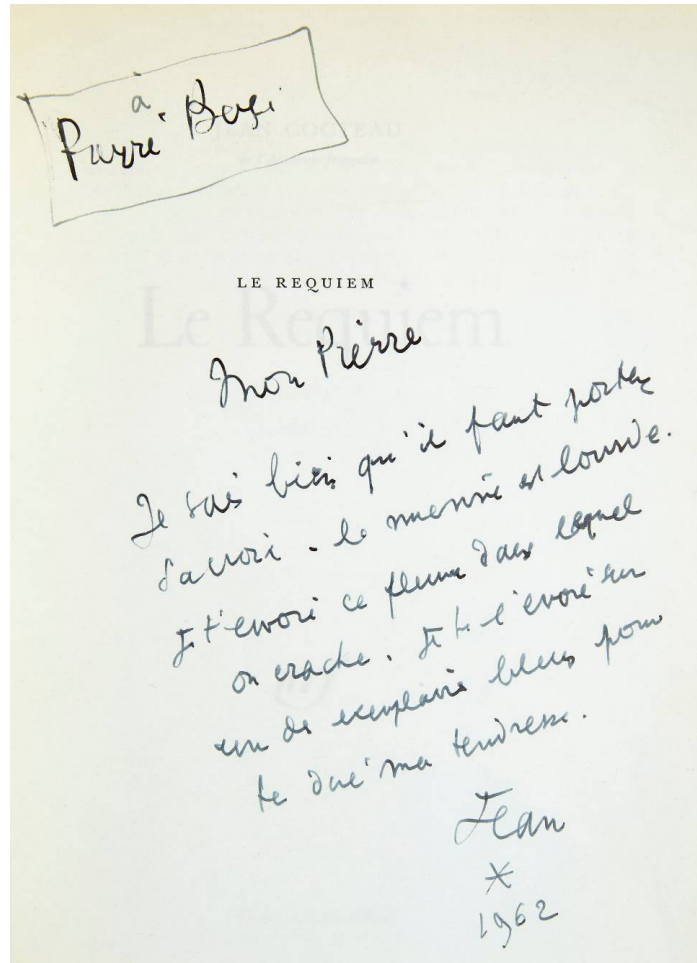 à
Pierre
JEAN COCTEAU
de l'Académie française
LE REQUIEM
Le Requiem
Mon Pierre
Je sais bien qu'il faut porter
sa croix. la mienne est lourde.
Je t'envoie ce fleuve dans lequel
on crache. Je te l'envoie sur
un des exemplaires bleus pour
te dire ma tendresse.
Jean
*
1962